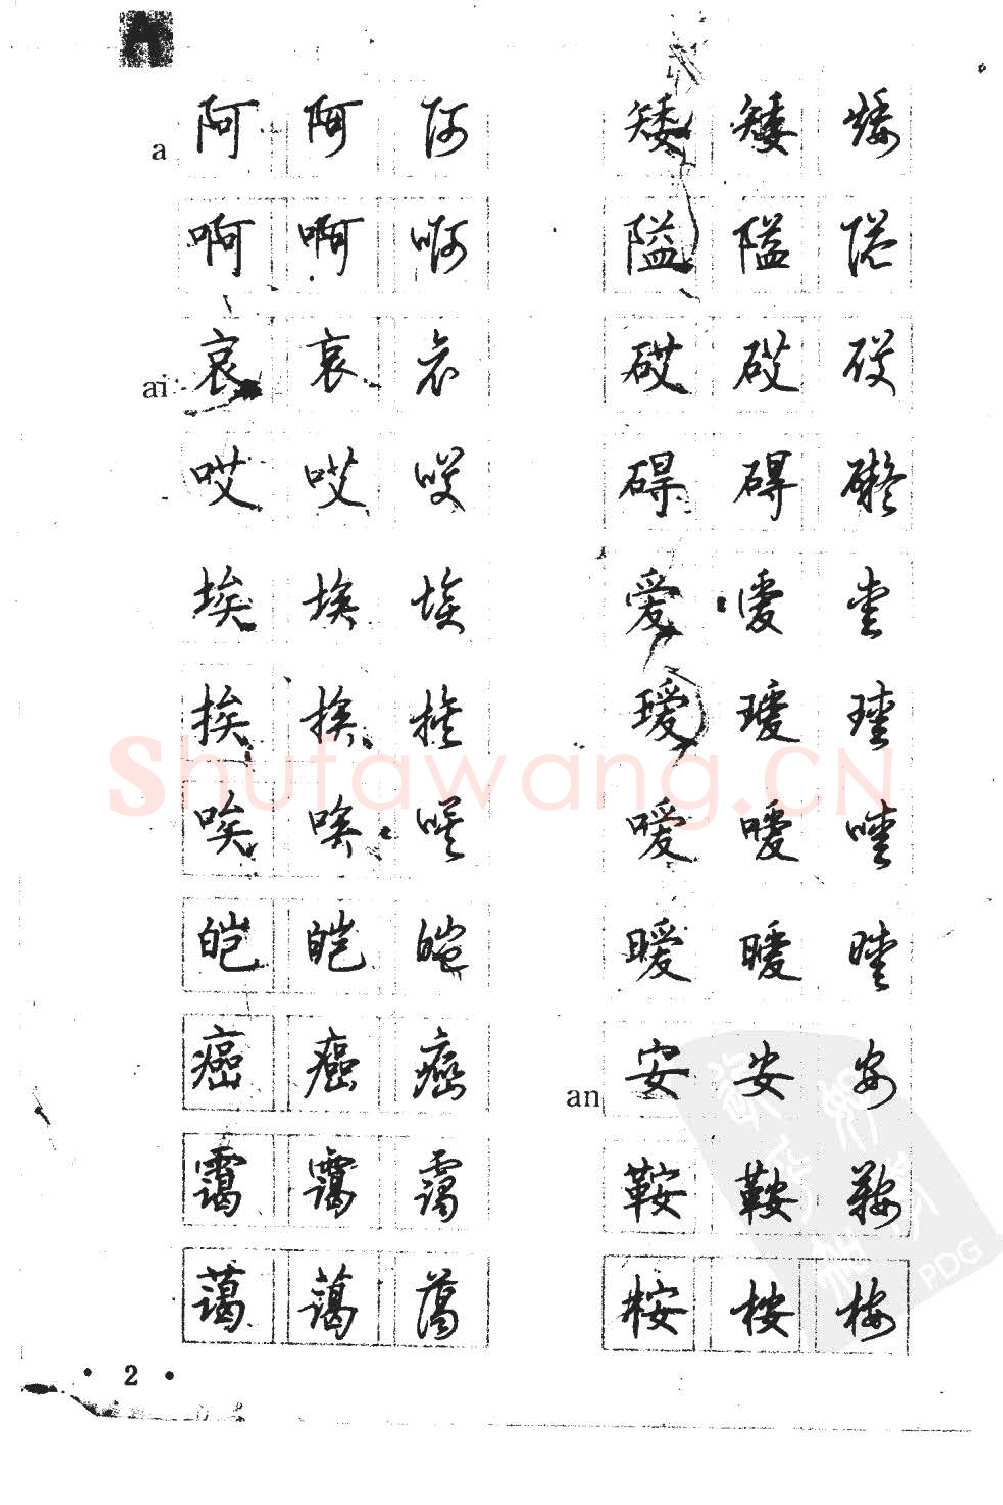 A
a 阿 阿 阿
啊 啊 啊
ai 哀 哀 哀
哎 哎 哎
埃 埃 埃
挨 挨 挨
唉 唉 唉
皑 皑 皑
癌 癌 癌
霭 霭 霭
蔼 蔼 蔼
矮 矮 矮
隘 隘 隘
砹 砹 砹
碍 碍 礙
爱 爱 爱
瑷 瑷 瑷
嗳 嗳 嗳
暧 暧 暧
an 安 安 安
鞍 鞍 鞍
桉 桉 桉
· 2 ·
Shufawang.CN
PDG